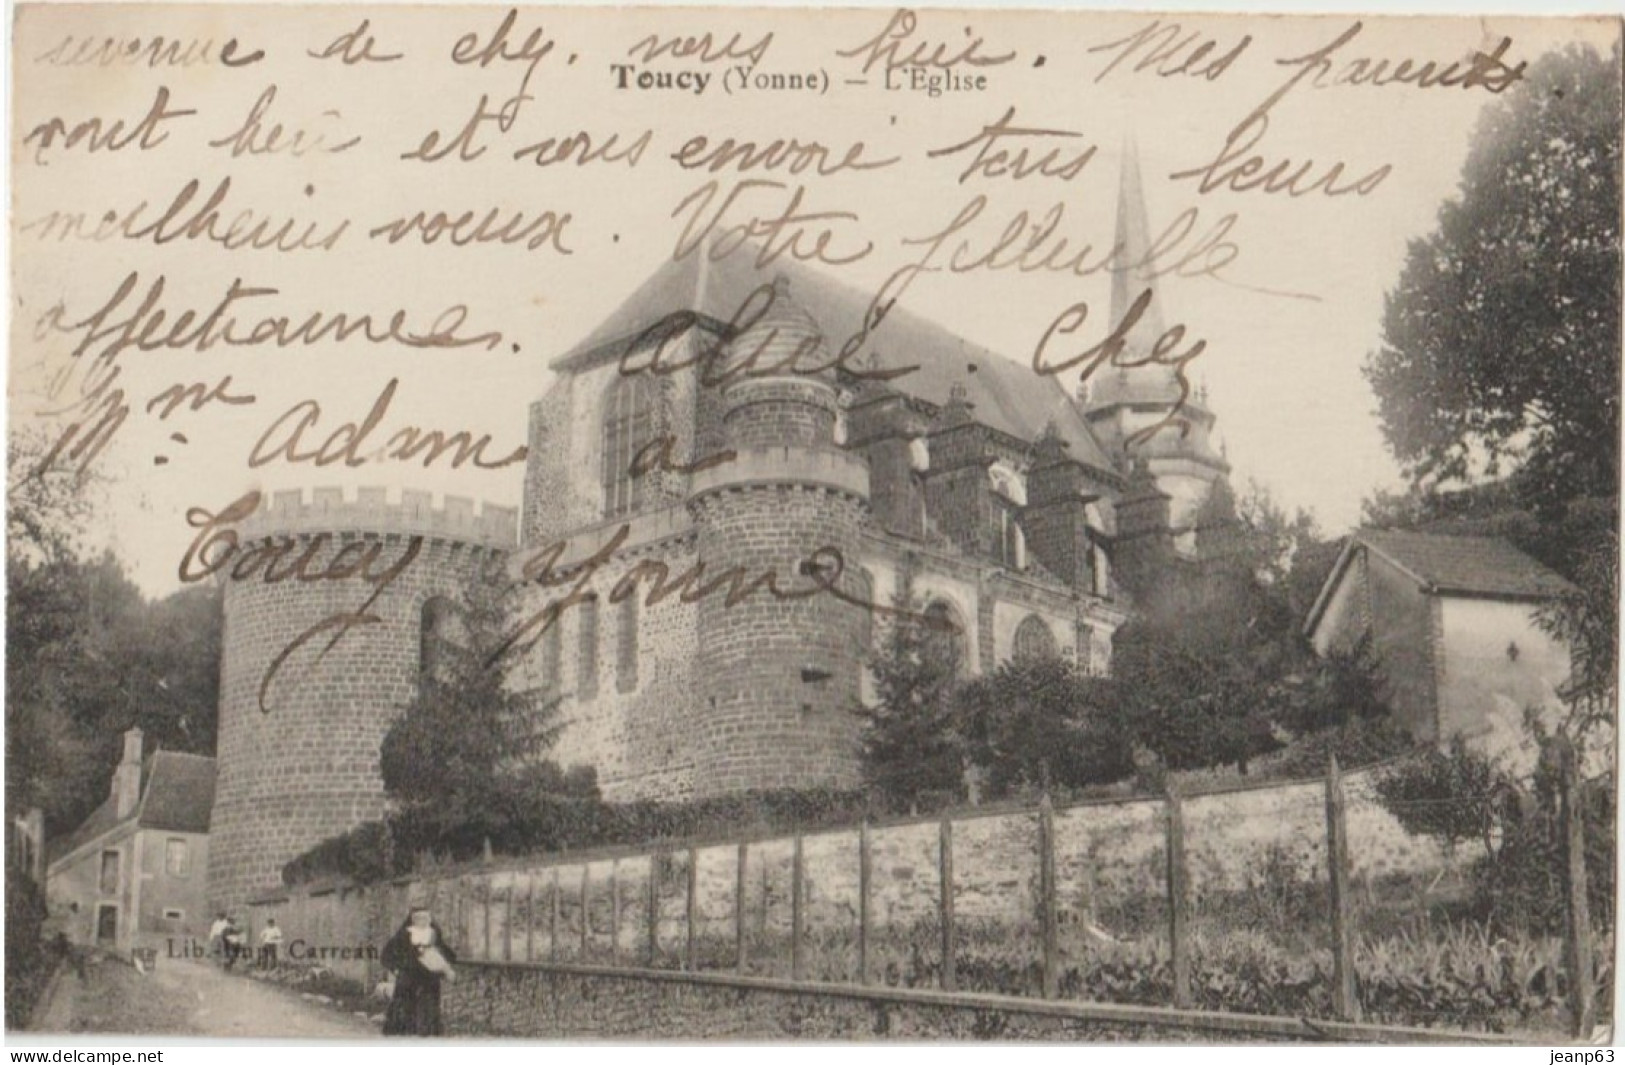 revenue de chez. nous hier. Mes parents
Toucy (Yonne) — L'Eglise
vont bein et vous envoie tous leurs
meilheurs voeux. Votre filleulle
affectionnee. Alice. Chez
Mme Adam a
Toucy Yonne
Lib.-Imp. Carreau
www.delcampe.net
jeanp63